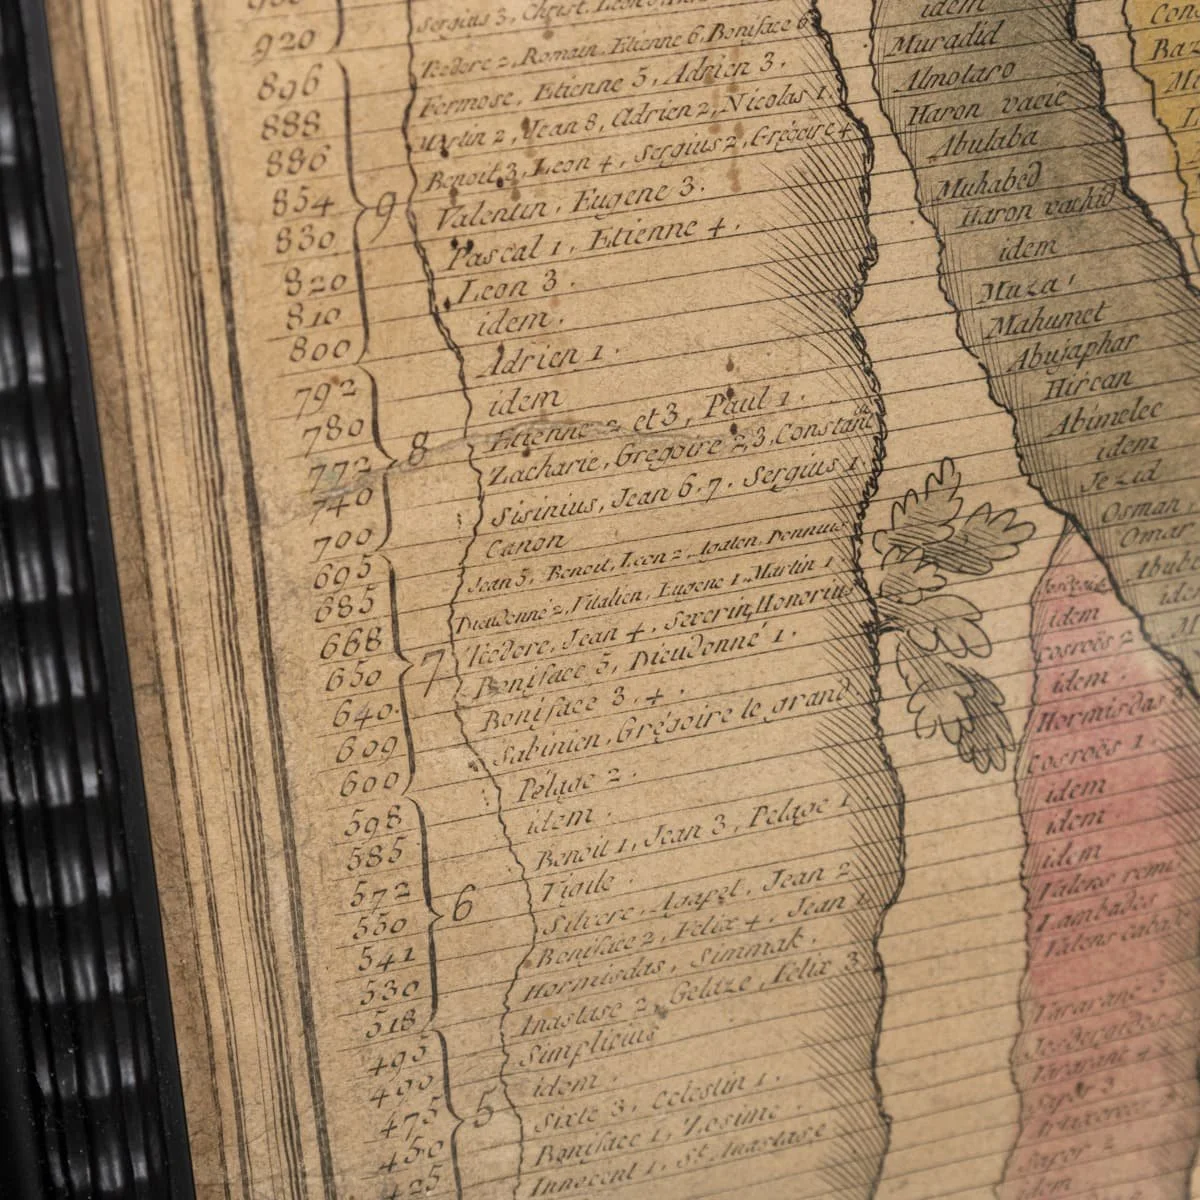 920
896
888
886
854
830
820
810
800
9
792
780
772
740
700
8
695
685
668
650
640
609
600
7
598
585
572
550
541
530
518
6
495
490
475
450
425
5
Sergius 3, Christ. Leon
Teodore 2, Romain, Etienne 6, Boniface 6
Formose, Etienne 5, Adrien 3.
Martin 2, Jean 8, Adrien 2, Nicolas 1.
Benoit 3, Leon 4, Sergius 2, Grégoire 4
Valentin, Eugene 3.
Pascal 1, Etienne 4.
Leon 3.
idem.
Adrien 1.
idem
Etienne 2 et 3, Paul 1.
Zacharie, Gregoire 2, 3, Constant
Sisinius, Jean 6. 7. Sergius 1.
Canon
Jean 5, Benoit, Leon 2, Agaton, Donnus
Dieudonné 2, Vitalien, Eugene 1, Martin 1
Teodore, Jean 4, Severin, Honorius
Boniface 5, Dieudonné 1.
Boniface 3, 4.
Sabinien, Grégoire le grand.
Pélage 2.
idem.
Benoit 1, Jean 3, Pelage 1
Vigile.
Silvere, Agapet, Jean 2
Boniface 2, Felix 4, Jean 1.
Hormisdas, Simmak.
Anastase 2, Gelaze, Felix 3
Simplicius
idem.
Sixte 3, Celestin 1.
Boniface 1, Zosime.
Innocent 1, St. Anastase
idem
Muradid
Almotaro
Haron vacie
Abulaba
Muhabed
Haron rachid
idem
Muza
Mahumet
Abujaphar
Hircan
Abimelec
idem
Jezid
Osman
Omar
Abube
idem
cosroës 2
idem.
Hormisdas 3
cosroës 1.
idem
idem
idem
Lambades
Vararane 5
Vararane 4
Sapor 3
Sapor 2
idem
Con
Baz